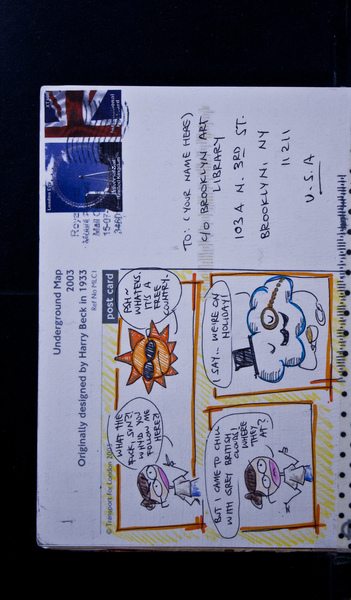 Underground Map
2003
Originally designed by Harry Beck in 1933
Ref No MLC1
post card
© Transport for London 2003
WHAT THE
FUCK, SUN?!
WHY'D YOU
FOLLOW ME
HERE?!
PSH~
WHATEVS.
IT'S A
FREE
COUNTRY.
BUT I CAME TO CHILL
WITH GREY BRITISH
CLOUDS! WHERE
THEY
AT?
I SAY... WE'RE ON
HOLIDAY!
TO: (YOUR NAME HERE)
C/O BROOKLYN ART
LIBRARY
103A N. 3RD ST.
BROOKLYN, NY
11211
U.S.A